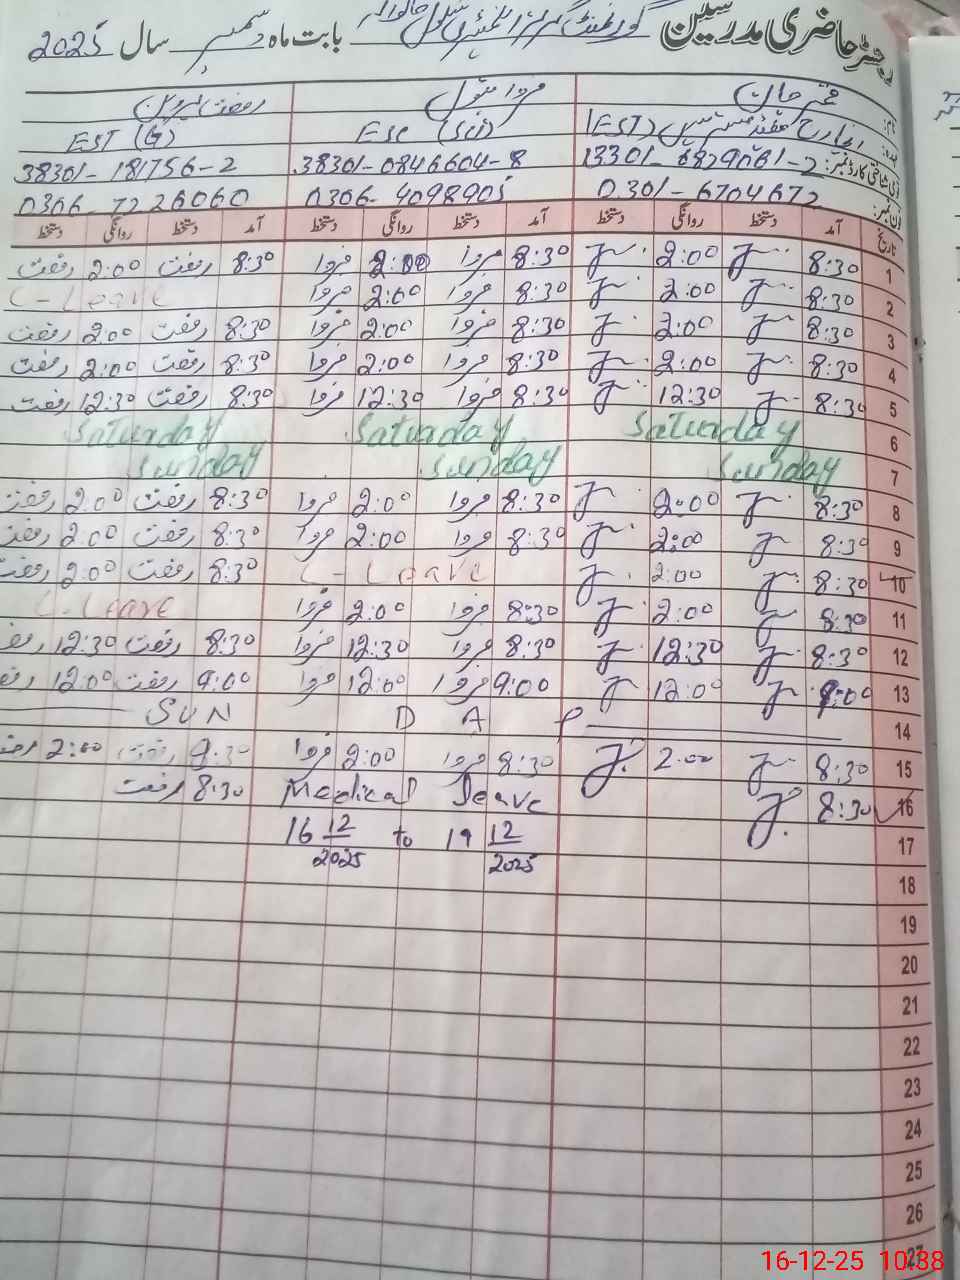 رجسٹر حاضری مدرسین گورنمنٹ گرلز ایلیمنٹری سکول بابت ماہ دسمبر سال 2025
نام: مروا بتول رفعت پروین
عہدہ: انچارج ہیڈ مسٹریس (EST) ESE (Sci) EST (G)
قومی شناختی کارڈ نمبر: 38301-0846604-8 38301-181756-2
فون نمبر: 0301-6704672 0306-4098905 0306-7226060
تاریخ آمد دستخط روانگی دستخط آمد دستخط روانگی دستخط آمد دستخط روانگی دستخط
1 8:30 2:00 8:30 مروا 2:00 مروا 8:30 رفعت 2:00 رفعت
2 8:30 2:00 8:30 مروا 2:00 مروا C-Leave
3 8:30 2:00 8:30 مروا 2:00 مروا 8:30 رفعت 2:00 رفعت
4 8:30 2:00 8:30 مروا 2:00 مروا 8:30 رفعت 2:00 رفعت
5 8:30 12:30 8:30 مروا 12:30 مروا 8:30 رفعت 12:30 رفعت
6 Saturday Saturday Saturday
7 Sunday Sunday Sunday
8 8:30 2:00 8:30 مروا 2:00 مروا 8:30 رفعت 2:00 رفعت
9 8:30 2:00 8:30 مروا 2:00 مروا 8:30 رفعت 2:00 رفعت
10 8:30 2:00 C-Leave 8:30 رفعت 2:00 رفعت
11 8:30 2:00 8:30 مروا 2:00 مروا C-Leave
12 8:30 12:30 8:30 مروا 12:30 مروا 8:30 رفعت 12:30
13 9:00 12:00 9:00 مروا 12:00 مروا 9:00 رفعت 12:00
14 SUN D A Y
15 8:30 2:00 8:30 مروا 2:00 مروا 8:30 رفعت 2:00
16 8:30 Medical Leave 8:30 رفعت
17 16 12/2025 to 19 12/2025
18
19
20
21
22
23
24
25
26
27
16-12-25 10:38